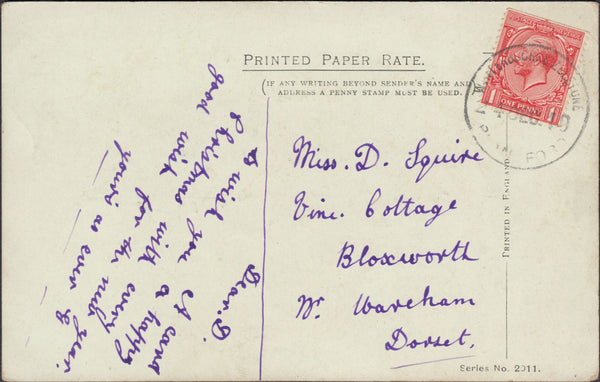 PRINTED PAPER RATE.
(IF ANY WRITING BEYOND SENDER'S NAME AND
ADDRESS A PENNY STAMP MUST BE USED.)
Dear. D.
A card
to wish you a happy
Christmas with every
good wish for the new year.
yours as ever
Miss. D. Squire
Vine Cottage
Bloxworth
Nr. Wareham
Dorset.
PRINTED IN ENGLAND
Series No. 2011.
1 ONE PENNY 1